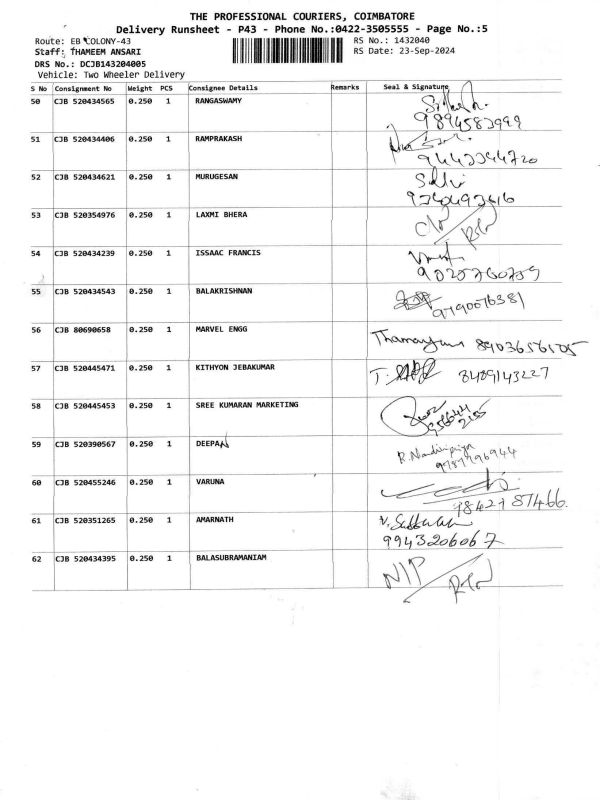 THE PROFESSIONAL COURIERS, COIMBATORE
Delivery Runsheet - P43 - Phone No.:0422-3505555 - Page No.:5
Route: EB COLONY-43 RS No.: 1432040
Staff: THAMEEM ANSARI RS Date: 23-Sep-2024
DRS No.: DCJB143204005
Vehicle: Two Wheeler Delivery
S No Consignment No Weight PCS Consignee Details Remarks Seal & Signature
50 CJB 520434565 0.250 1 RANGASWAMY
9894583999
51 CJB 520434406 0.250 1 RAMPRAKASH
9443344720
52 CJB 520434621 0.250 1 MURUGESAN
53 CJB 520354976 0.250 1 LAXMI BHERA
54 CJB 520434239 0.250 1 ISSAAC FRANCIS
9025760759
55 CJB 520434543 0.250 1 BALAKRISHNAN
9790076381
56 CJB 80690658 0.250 1 MARVEL ENGG
57 CJB 520445471 0.250 1 KITHYON JEBAKUMAR
8489143227
58 CJB 520445453 0.250 1 SREE KUMARAN MARKETING
59 CJB 520390567 0.250 1 DEEPAN
60 CJB 520455246 0.250 1 VARUNA
98427 87466
61 CJB 520351265 0.250 1 AMARNATH
9943206067
62 CJB 520434395 0.250 1 BALASUBRAMANIAM
N/P